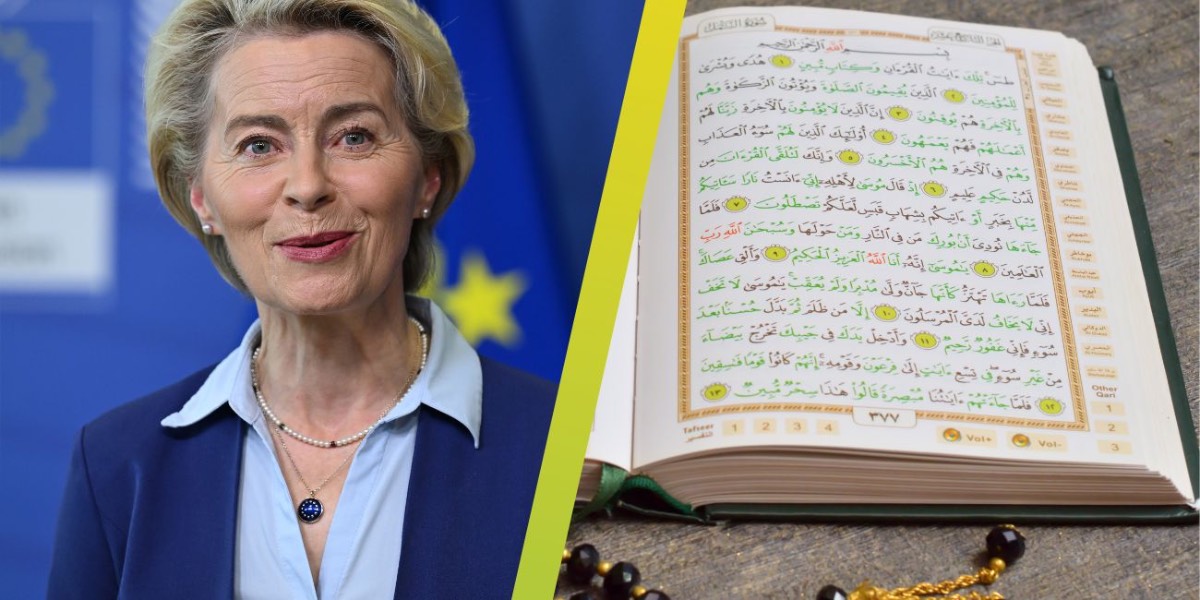 سُورَةُ النَّمْلِ
بِسْمِ اللَّهِ الرَّحْمَٰنِ الرَّحِيمِ
طسٓ ۚ تِلْكَ ءَايَٰتُ الْقُرْءَانِ وَكِتَابٍ مُّبِينٍ ١ هُدًى وَبُشْرَىٰ
لِلْمُؤْمِنِينَ ٢ الَّذِينَ يُقِيمُونَ الصَّلَوٰةَ وَيُؤْتُونَ الزَّكَوٰةَ وَهُم
بِالْأَخِرَةِ هُمْ يُوقِنُونَ ٣ إِنَّ الَّذِينَ لَا يُؤْمِنُونَ بِالْأَخِرَةِ زَيَّنَّا لَهُمْ
أَعْمَٰلَهُمْ فَهُمْ يَعْمَهُونَ ٤ أُوْلَٰٓئِكَ الَّذِينَ لَهُمْ سُوٓءُ الْعَذَابِ
وَهُمْ فِي الْأَخِرَةِ هُمُ الْأَخْسَرُونَ ٥ وَإِنَّكَ لَتُلَقَّى الْقُرْءَانَ مِن
لَّدُنْ حَكِيمٍ عَلِيمٍ ٦ إِذْ قَالَ مُوسَىٰ لِأَهْلِهِ إِنِّي ءَانَسْتُ نَارًا سَـَٔاتِيكُم
مِّنْهَا بِخَبَرٍ أَوْ ءَاتِيكُم بِشِهَابٍ قَبَسٍ لَّعَلَّكُمْ تَصْطَلُونَ ٧ فَلَمَّا
جَآءَهَا نُودِيَ أَنۢ بُورِكَ مَن فِي النَّارِ وَمَنْ حَوْلَهَا وَسُبْحَٰنَ اللَّهِ رَبِّ
الْعَٰلَمِينَ ٨ يَٰمُوسَىٰٓ إِنَّهُۥٓ أَنَا اللَّهُ الْعَزِيزُ الْحَكِيمُ ٩ وَأَلْقِ عَصَاكَ
فَلَمَّا رَءَاهَا تَهْتَزُّ كَأَنَّهَا جَآنٌّ وَلَّىٰ مُدْبِرًا وَلَمْ يُعَقِّبْ يَٰمُوسَىٰ لَا تَخَفْ
إِنِّي لَا يَخَافُ لَدَيَّ الْمُرْسَلُونَ ١٠ إِلَّا مَن ظَلَمَ ثُمَّ بَدَّلَ حُسْنًۢا بَعْدَ
سُوٓءٍ فَإِنِّي غَفُورٌ رَّحِيمٌ ١١ وَأَدْخِلْ يَدَكَ فِي جَيْبِكَ تَخْرُجْ بَيْضَآءَ
مِنْ غَيْرِ سُوٓءٍ فِي تِسْعِ ءَايَٰتٍ إِلَىٰ فِرْعَوْنَ وَقَوْمِهِۦٓ إِنَّهُمْ كَانُواْ قَوْمًا فَٰسِقِينَ
١٢ فَلَمَّا جَآءَتْهُمْ ءَايَٰتُنَا مُبْصِرَةً قَالُواْ هَٰذَا سِحْرٌ مُّبِينٌ ١٣
٣٧٧
Tafseer 1 2 3 4 Vol+ Vol-
التفسير
Other
Qari
1
2
3